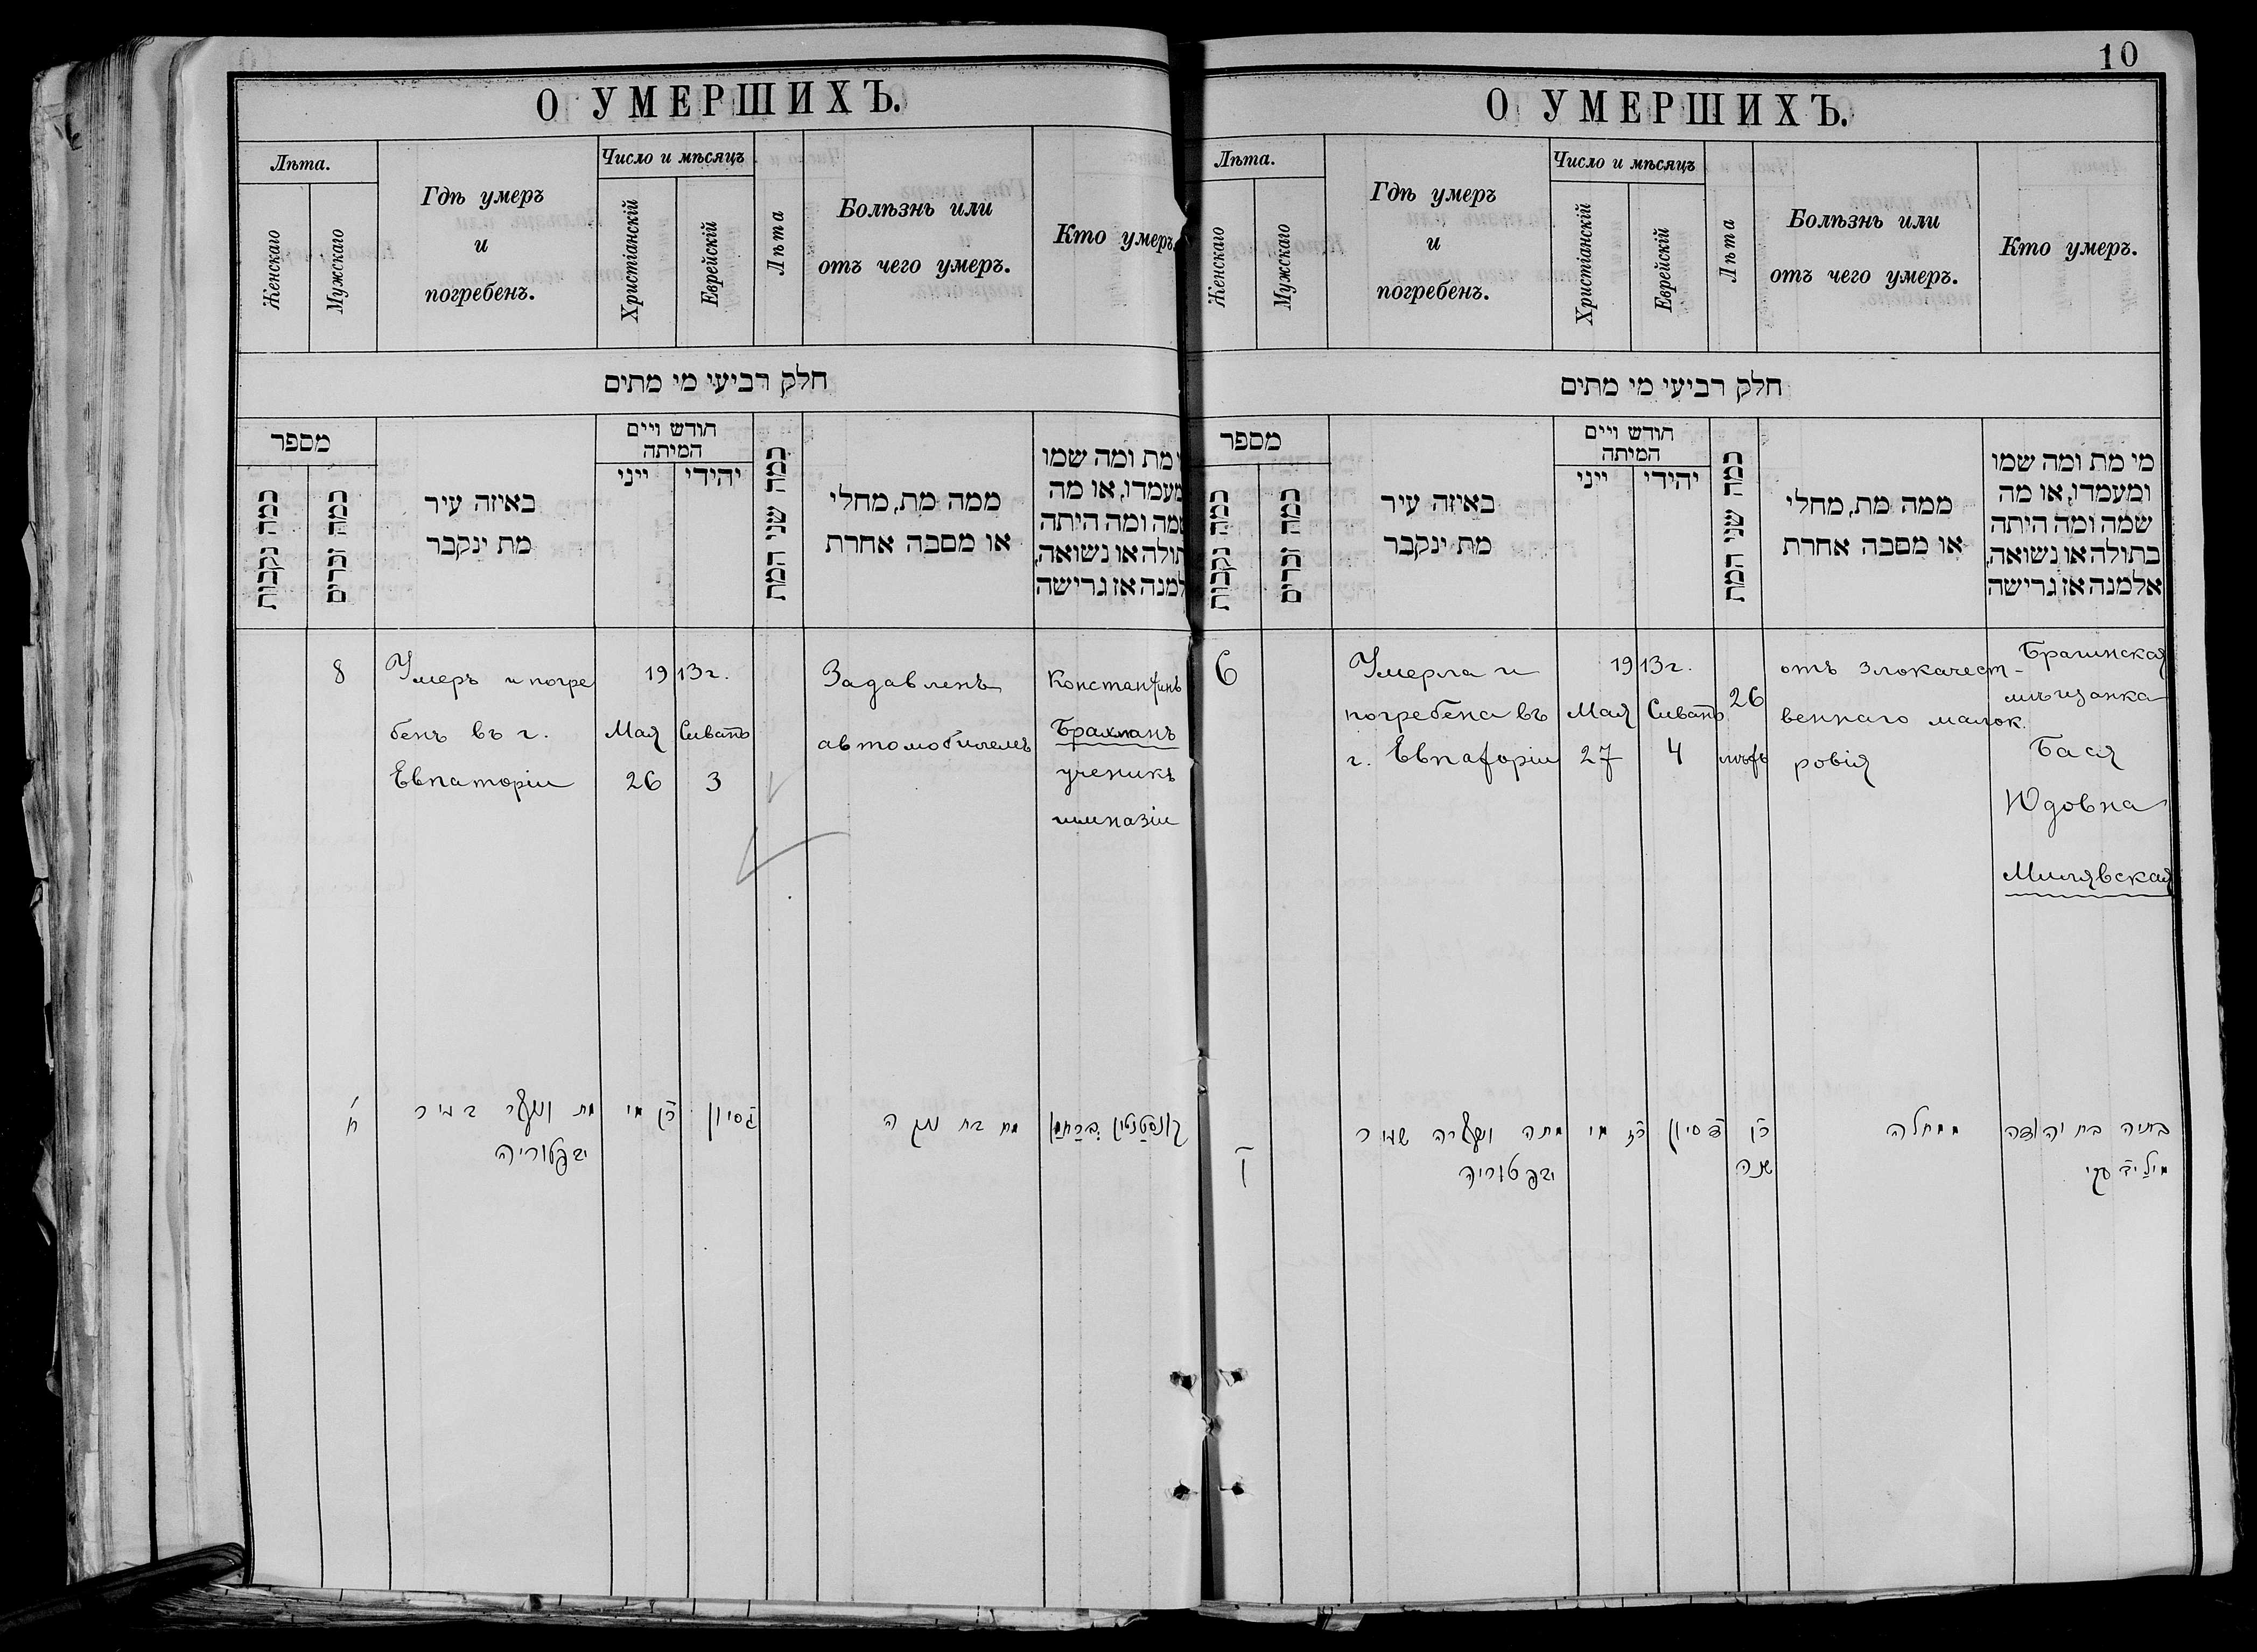 О УМЕРШИХЪ.
Лѣта.
Женскаго
Мужскаго
Гдѣ умеръ
и
погребенъ.
Число и мѣсяцъ
Христіанскій
Еврейскій
Лѣта
Болѣзнь или
отъ чего умеръ.
Кто умеръ
חלק רביעי מי מתים
מספר
כמה נקבות
כמה זכרים
באיזה עיר
מת ינקבר
חודש ויים
המיתה
ייני
יהידי
כמה שני המת
ממה מת, מחלי
או מסבה אחרת
מת ומה שמו
מעמדו, או מה
שמה ומה היתה
תולה או נשואה,
למנה אז גרישה
8
Умеръ и погре
бенъ въ г.
Евпаторіи
1913г.
Мая
26
Сиванъ
3
Задавленъ
автомобилемъ
Константинъ
Брахманъ
ученикъ
гимназіи
ח
מת ונקבר בעיר
יבפטוריה
כו מי
ג סיון
קונסטנטין ברחמן
10
О УМЕРШИХЪ.
Лѣта.
Женскаго
Мужскаго
Гдѣ умеръ
и
погребенъ.
Число и мѣсяцъ
Христіанскій
Еврейскій
Лѣта
Болѣзнь или
отъ чего умеръ.
Кто умеръ.
חלק רביעי מי מתים
מספר
כמה נקבות
כמה זכרים
באיזה עיר
מת ינקבר
חודש ויים
המיתה
ייני
יהידי
כמה שני המת
ממה מת, מחלי
או מסבה אחרת
מי מת ומה שמו
ומעמדו, או מה
שמה ומה היתה
בתולה או נשואה,
אלמנה אז גרישה
6
Умерла и
погребена въ
г. Евпаторіи
1913г.
Мая
27
Сиванъ
4
26
лѣтъ
отъ злокачест-
веннаго малок
ровія
Брагинская
мѣщанка
Бася
Юдовна
Милявская
ו
מתה ונקברה בעיר
יבפטוריה
כז מי
ד סיון
כו
שנה
ממחלה
בתיה בת יהודה